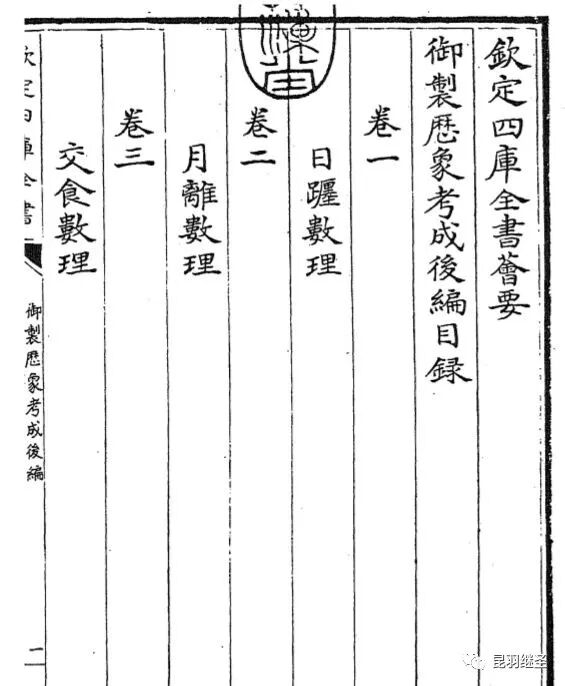 欽定四庫全書薈要
御製歷象考成後編目録
卷一
日躔數理
卷二
月離數理
卷三
交食數理
欽定四庫全書
御製歷象考成後編
一
昆羽继圣